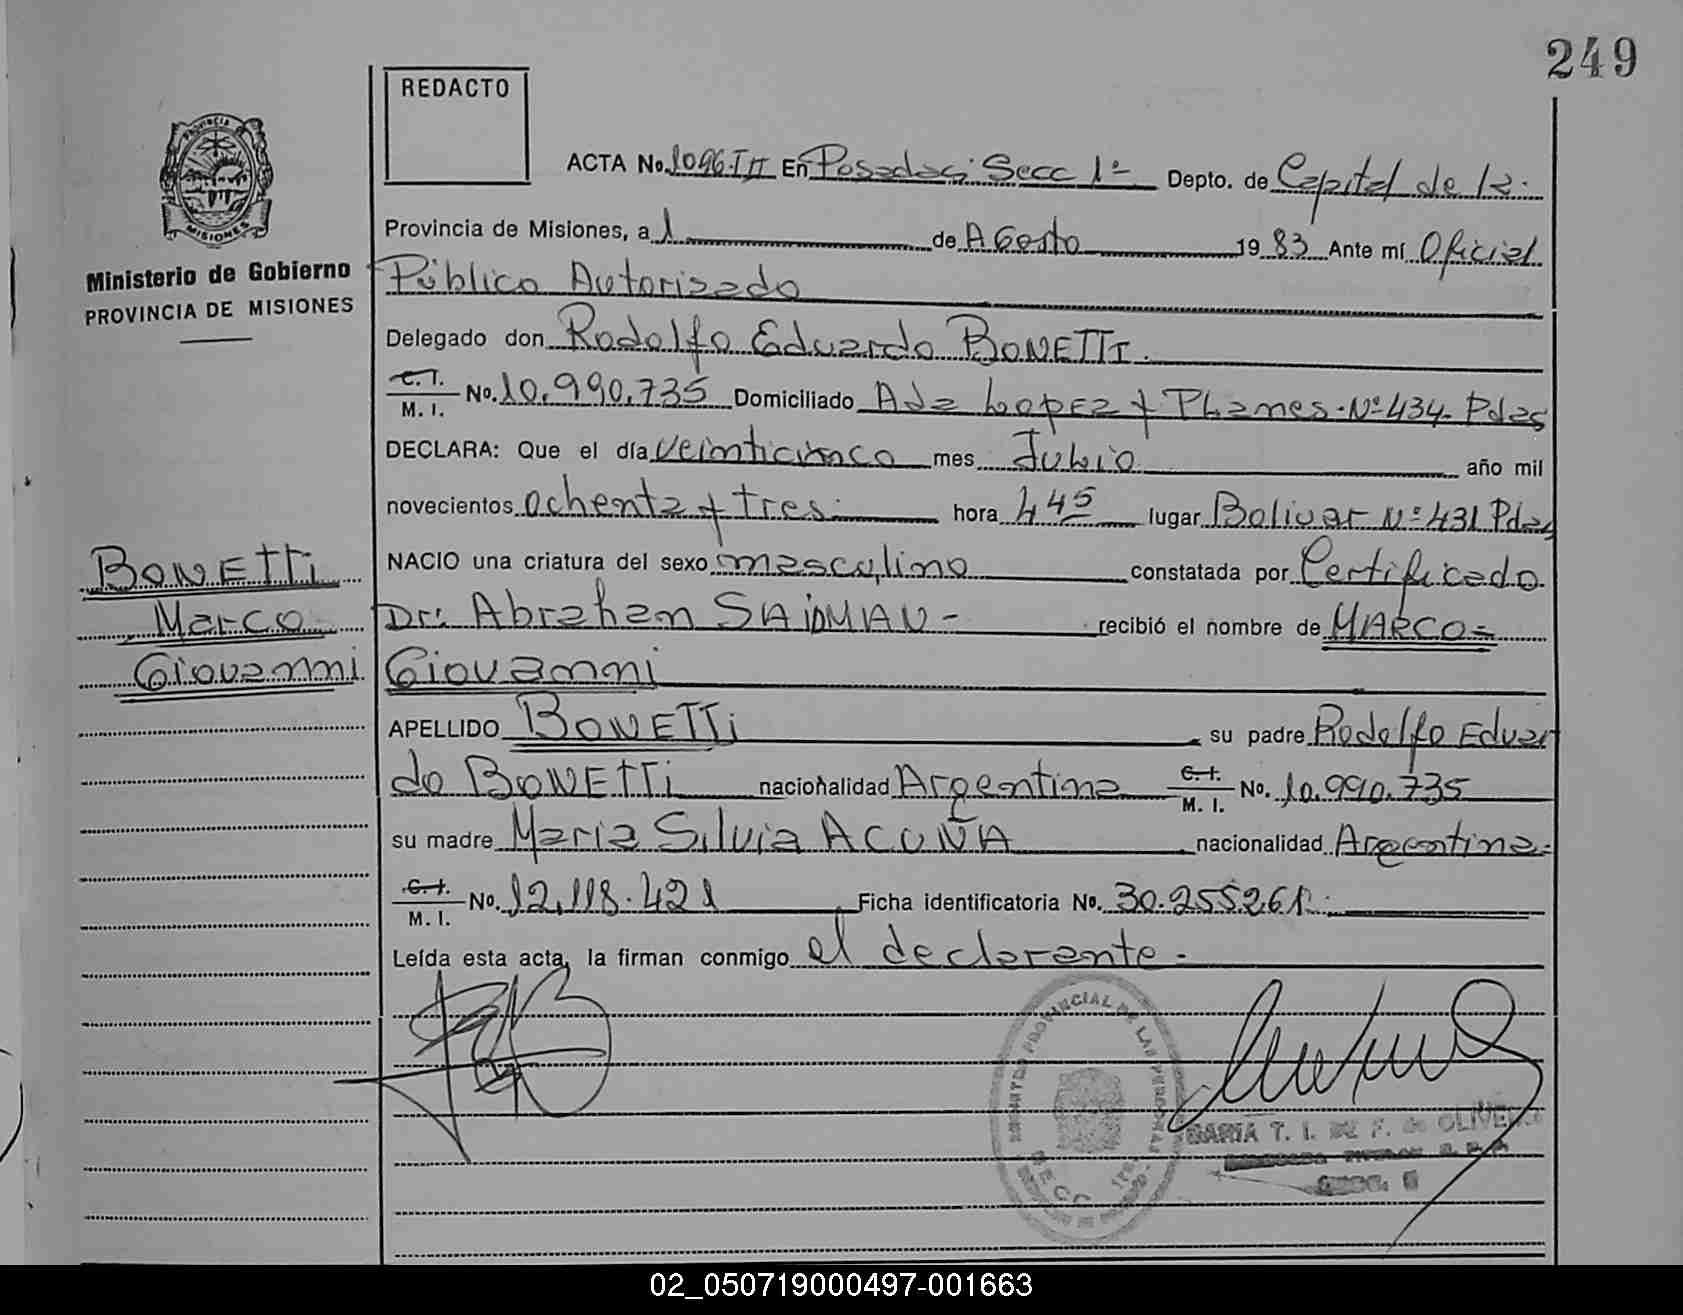 249
REDACTO
ACTA No. 1096-III En Posadas; Secc 1ª Depto. de Capital de la
Provincia de Misiones, a 1 de AGosto 1983 Ante mí Oficial
Público Autorizado
Delegado don Rodolfo Eduardo BONETTI.
C.I. M.I. No. 10.990.735 Domiciliado Ada Lopez y Planes-Nº 434- Pdas
DECLARA: Que el día veinticinco mes Julio año mil
novecientos ochenta y tres hora 4 45 lugar Bolivar Nº 431 Pdas
NACIO una criatura del sexo masculino constatada por Certificado
Dr: Abraham SAIDMAN- recibió el nombre de MARCO=
Giovanni
APELLIDO BONETTi su padre Rodolfo Eduar
do BONETTi nacionalidad Argentina C.I. M.I. No. 10.990.735
su madre Maria Silvia ACUÑA nacionalidad Argentina-
C.I. M.I. No. 12.118.421 Ficha identificatoria No. 30.255261
Leída esta acta, la firman conmigo el declarante-
PROVINCIA DE MISIONES
MISIONES
Ministerio de Gobierno
PROVINCIA DE MISIONES
BONETTi
Marco
Giovanni
PROVINCIAL DE LAS PERSONAS
MARIA T. I. DE F. de OLIVE
SECC.
02_050719000497-001663